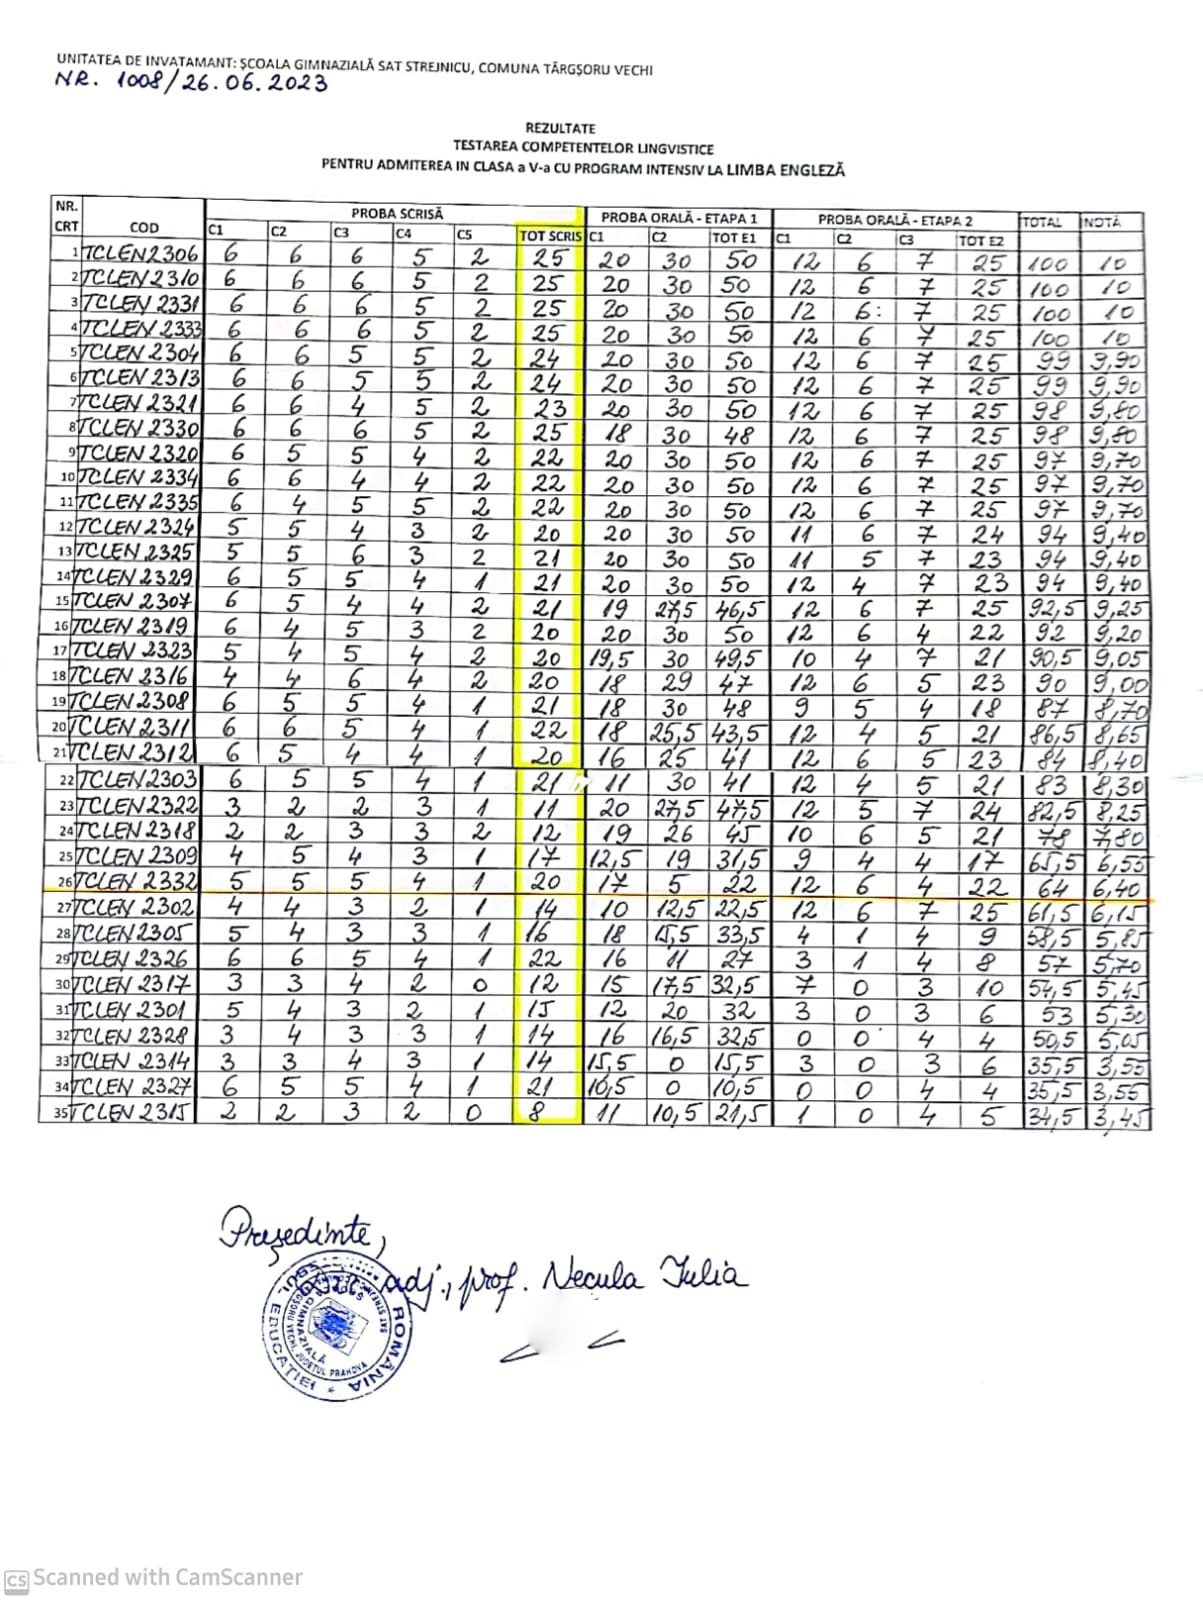 UNITATEA DE INVATAMANT: ȘCOALA GIMNAZIALĂ SAT STREJNICU, COMUNA TÂRGȘORU VECHI
NR. 1008/26.06.2023
REZULTATE
TESTAREA COMPETENTELOR LINGVISTICE
PENTRU ADMITEREA IN CLASA a V-a CU PROGRAM INTENSIV LA LIMBA ENGLEZĂ
NR. CRT COD PROBA SCRISĂ PROBA ORALĂ - ETAPA 1 PROBA ORALĂ - ETAPA 2 TOTAL NOTĂ
C1 C2 C3 C4 C5 TOT SCRIS C1 C2 TOT E1 C1 C2 C3 TOT E2
1 TCLEN2306 6 6 6 5 2 25 20 30 50 12 6 7 25 100 10
2 TCLEN 2310 6 6 6 5 2 25 20 30 50 12 6 7 25 100 10
3 TCLEN 2331 6 6 6 5 2 25 20 30 50 12 6: 7 25 100 10
4 TCLEN 2333 6 6 6 5 2 25 20 30 50 12 6 7 25 100 10
5 TCLEN 2304 6 6 5 5 2 24 20 30 50 12 6 7 25 99 9,90
6 TCLEN 2313 6 6 5 5 2 24 20 30 50 12 6 7 25 99 9,90
7 TCLEN 2321 6 6 4 5 2 23 20 30 50 12 6 7 25 98 9,80
8 TCLEN 2330 6 6 6 5 2 25 18 30 48 12 6 7 25 98 9,80
9 TCLEN 2320 6 5 5 4 2 22 20 30 50 12 6 7 25 97 9,70
10 TCLEN 2334 6 6 4 4 2 22 20 30 50 12 6 7 25 97 9,70
11 TCLEN 2335 6 4 5 5 2 22 20 30 50 12 6 7 25 97 9,70
12 TCLEN 2324 5 5 4 3 2 20 20 30 50 11 6 7 24 94 9,40
13 TCLEN 2325 5 5 6 3 2 21 20 30 50 11 5 7 23 94 9,40
14 TCLEN 2329 6 5 5 4 1 21 20 30 50 12 4 7 23 94 9,40
15 TCLEN 2307 6 5 4 4 2 21 19 27,5 46,5 12 6 7 25 92,5 9,25
16 TCLEN 2319 6 4 5 3 2 20 20 30 50 12 6 4 22 92 9,20
17 TCLEN 2323 5 4 5 4 2 20 19,5 30 49,5 10 4 7 21 90,5 9,05
18 TCLEN 2316 4 4 6 4 2 20 18 29 47 12 6 5 23 90 9,00
19 TCLEN 2308 6 5 5 4 1 21 18 30 48 9 5 4 18 87 8,70
20 TCLEN 2311 6 6 5 4 1 22 18 25,5 43,5 12 4 5 21 86,5 8,65
21 TCLEN 2312 6 5 4 4 1 20 16 25 41 12 6 5 23 84 8,40
22 TCLEN 2303 6 5 5 4 1 21 11 30 41 12 4 5 21 83 8,30
23 TCLEN 2322 3 2 2 3 1 11 20 27,5 47,5 12 5 7 24 82,5 8,25
24 TCLEN 2318 2 2 3 3 2 12 19 26 45 10 6 5 21 78 7,80
25 TCLEN 2309 4 5 4 3 1 17 12,5 19 31,5 9 4 4 17 65,5 6,55
26 TCLEN 2332 5 5 5 4 1 20 17 5 22 12 6 4 22 64 6,40
27 TCLEN 2302 4 4 3 2 1 14 10 12,5 22,5 12 6 7 25 61,5 6,15
28 TCLEN 2305 5 4 3 3 1 16 18 15,5 33,5 4 1 4 9 58,5 5,85
29 TCLEN 2326 6 6 5 4 1 22 16 11 27 3 1 4 8 57 5,70
30 TCLEN 2317 3 3 4 2 0 12 15 17,5 32,5 7 0 3 10 54,5 5,45
31 TCLEN 2301 5 4 3 2 1 15 12 20 32 3 0 3 6 53 5,30
32 TCLEN 2328 3 4 3 3 1 14 16 16,5 32,5 0 0 4 4 50,5 5,05
33 TCLEN 2314 3 3 4 3 1 14 15,5 0 15,5 3 0 3 6 35,5 3,55
34 TCLEN 2327 6 5 5 4 1 21 10,5 0 10,5 0 0 4 4 35,5 3,55
35 TCLEN 2315 2 2 3 2 0 8 11 10,5 21,5 1 0 4 5 34,5 3,45
Președinte,
adj., prof. Necula Iulia
ROMÂNIA
EDUCAȚIEI
GIMNAZIALĂ
JUDEȚUL PRAHOVA
CS Scanned with CamScanner